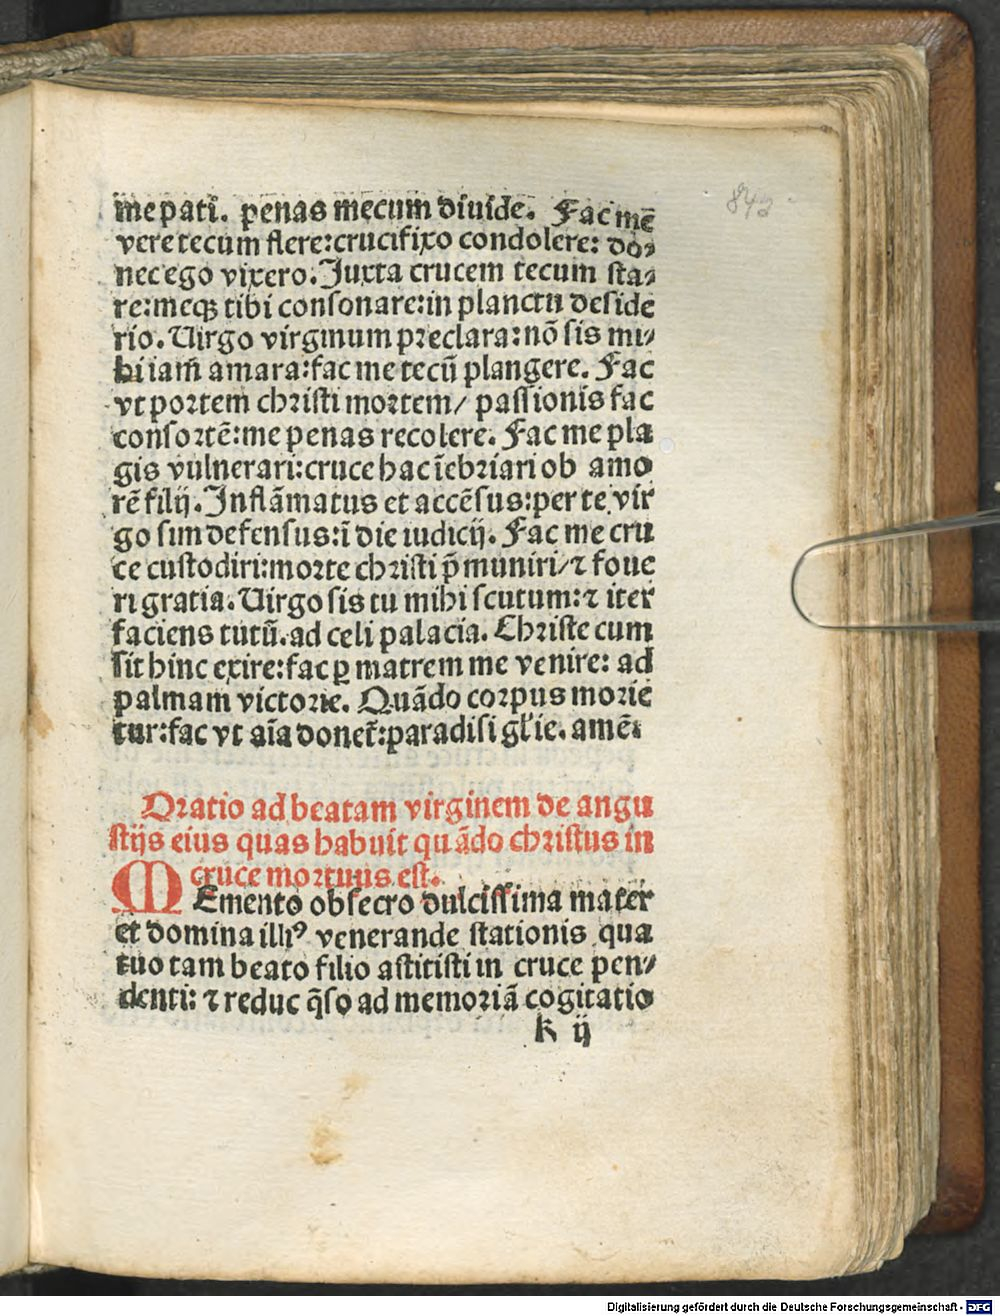 me pati. penas mecum diuide. Fac mē
vere tecum flere: crucifixo condolere: do⸗
nec ego vixero. Juxta crucem tecum sta⸗
re: meqꝫ tibi consonare: in planctu deside
rio. Uirgo virginum preclara: nō sis mi⸗
hi iam̄ amara: fac me tecū plangere. Fac
vt portem christi mortem/ passionis fac
consortē: me penas recolere. Fac me pla
gis vulnerari: cruce hac īebriari ob amo
rē filij. Inflāmatus et accēsus: per te vir
go sim defensus: ī die iudicij. Fac me cru
ce custodiri: morte christi p̄muniri/ ⁊ foue
ri gratia. Uirgo sis tu mihi scutum: ⁊ iter
faciens tutū. ad celi palacia. Christe cum
sit hinc exire: fac ꝑ matrem me venire: ad
palmam victorie. Quādo corpus morie
tur: fac vt aīa donet̄: paradisi gl'ie. amē.
Oratio ad beatam virginem de angu
stijs eius quas habuit quādo christus in
cruce mortuus est.
MEmento obsecro dulcissima mater
et domina illiꝰ venerande stationis qua
tuo tam beato filio astitisti in cruce pen⸗
denti: ⁊ reduc q̄so ad memoriā cogitatio
k ij
Digitalisierung gefördert durch die Deutsche Forschungsgemeinschaft - DFG